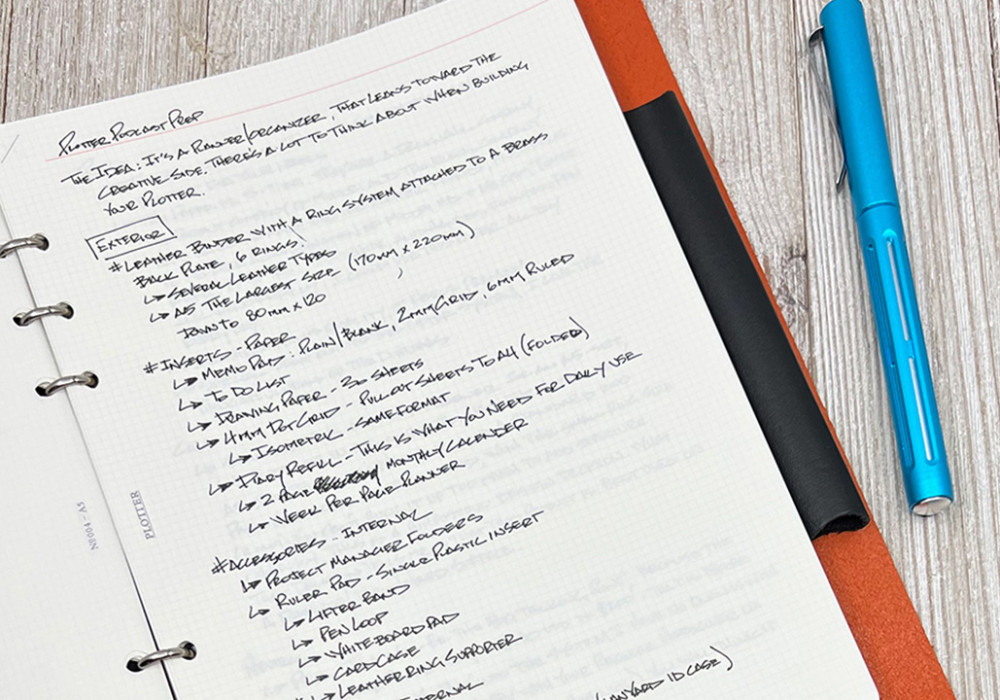 Plotter Podcast Prep
The Idea: It's a planner/organizer, that leans toward the
creative side. There's a lot to think about when building
your Plotter.
Exterior
# Leather binder with a ring system attached to a brass
back plate, 6 rings.
↳ Several leather types
↳ A5 the largest size (170mm x 220mm)
Down to 80mm x 120
# Inserts - Paper
↳ Memo Pad: Plain/Blank, 2mm Grid, 6mm Ruled
↳ To Do List
↳ Drawing Paper - 30 sheets
↳ 4mm Dot Grid - Pull out sheets to A4 (folded)
↳ Isometric - Same format
↳ Diary Refill - This is what you need for daily use
↳ 2 Page Monthly Calender
↳ Week Per Page Planner
# Accessories - Internal
↳ Project Manager Folders
↳ Ruler Pad - Single plastic insert
↳ Lifter Band
↳ Pen Loop
↳ Whiteboard Pad
↳ Card Case
↳ Leather Ring Supporter
ID Case)
PLOTTER